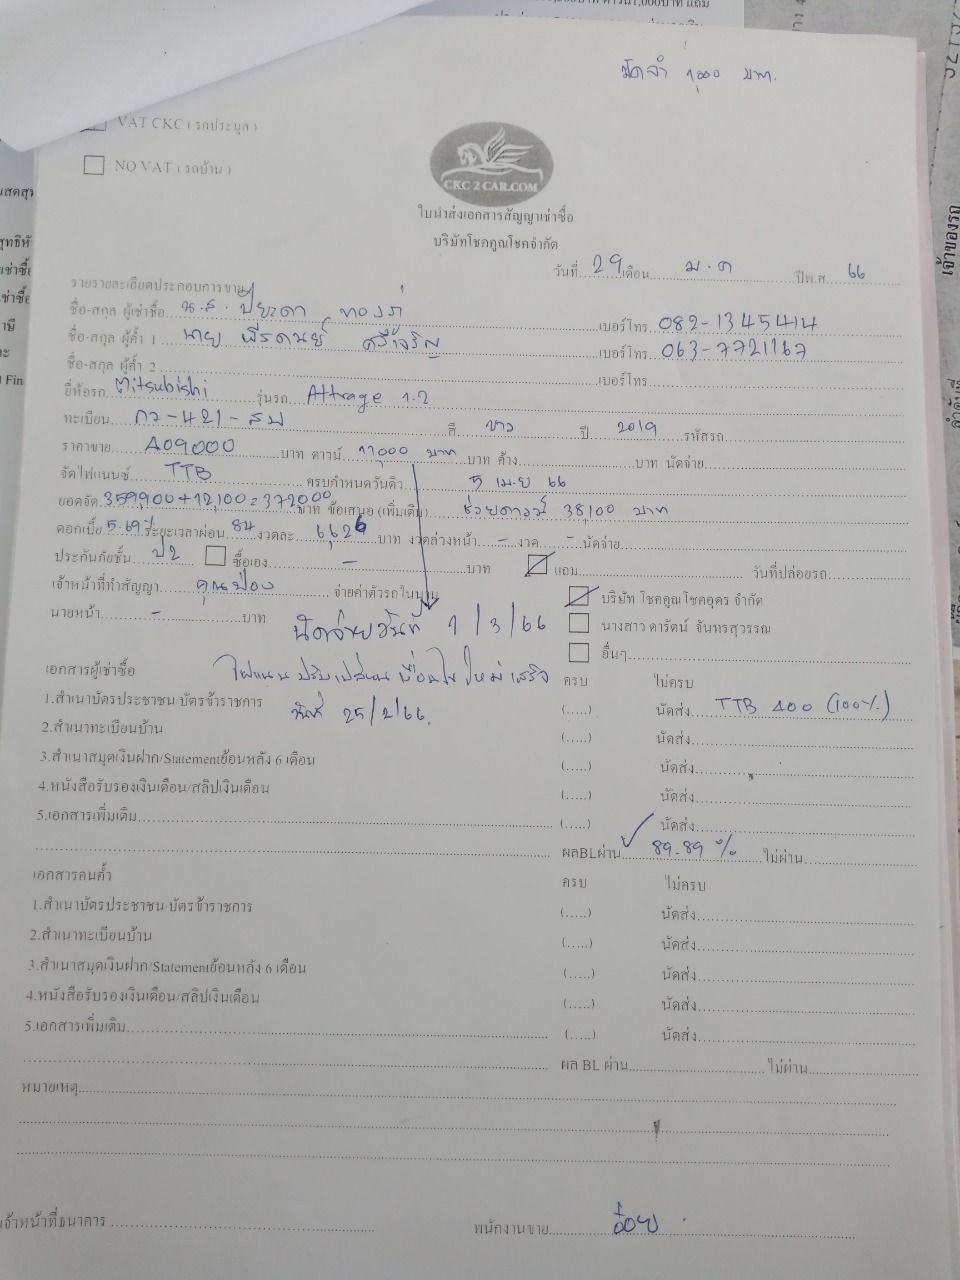 มัดจำ 1,000 บาท.
VAT CKC ( รถประมูล )
NO VAT ( รถบ้าน )
CKC 2 CAR.COM
ใบนำส่งเอกสารสัญญาเช่าซื้อ
บริษัทโชคคูณโชคจำกัด
วันที่ 29 เดือน ม.ค ปีพ.ศ 66
รายรายละเอียดประกอบการขาย
ชื่อ-สกุล ผู้เช่าซื้อ น.ส. ปิยะดา เบอร์โทร 082-1345414
ชื่อ-สกุล ผู้ค้ำ 1 นาย พีรดนย์ เบอร์โทร 063-7721167
ชื่อ-สกุล ผู้ค้ำ 2 เบอร์โทร
ยี่ห้อรถ Mitsubishi รุ่นรถ Attrage 1.2
ทะเบียน กว-421-สพ สี ขาว ปี 2019 รหัสรถ
ราคาขาย 409000 บาท ดาวน์ 11,000 บาท บาท ค้าง บาท นัดจ่าย
จัดไฟแนนซ์ TTB ครบกำหนดวันคิว 5 เม.ย 66
ยอดจัด 359,900+12,100=372000 บาท ข้อเสนอ (เพิ่มเติม) ช่วยดาวน์ 38,100 บาท
ดอกเบี้ย 5.69% ระยะเวลาผ่อน 84 งวดละ 6,626 บาท งวดล่วงหน้า - งวด - นัดจ่าย
ประกันภัยชั้น ป2 ซื้อเอง - บาท แถม วันที่ปล่อยรถ
เจ้าหน้าที่ทำสัญญา คุณป๋อง จ่ายค่าตัวรถในนาม บริษัท โชคคูณโชคอุดร จำกัด
นายหน้า - บาท นัดจ่ายวันที่ 1/3/66 นางสาว ดารัตน์ จันทรสุวรรณ
อื่นๆ
เอกสารผู้เช่าซื้อ ไฟแนน ปรับเปลี่ยน เงื่อนไข ใหม่ เสร็จ ครบ ไม่ครบ
1.สำเนาบัตรประชาชน/บัตรข้าราชการ วันที่ 25/2/66. (.....) นัดส่ง TTB 400 (100%)
2.สำเนาทะเบียนบ้าน (.....) นัดส่ง
3.สำเนาสมุดเงินฝาก/Statementย้อนหลัง 6 เดือน (.....) นัดส่ง
4.หนังสือรับรองเงินเดือน/สลิปเงินเดือน (.....) นัดส่ง
5.เอกสารเพิ่มเติม (.....) นัดส่ง
ผลBLผ่าน 89.89 % ไม่ผ่าน
เอกสารคนค้ำ ครบ ไม่ครบ
1.สำเนาบัตรประชาชน/บัตรข้าราชการ (.....) นัดส่ง
2.สำเนาทะเบียนบ้าน (.....) นัดส่ง
3.สำเนาสมุดเงินฝาก/Statementย้อนหลัง 6 เดือน (.....) นัดส่ง
4.หนังสือรับรองเงินเดือน/สลิปเงินเดือน (.....) นัดส่ง
5.เอกสารเพิ่มเติม (.....) นัดส่ง
ผล BL ผ่าน ไม่ผ่าน
หมายเหตุ
เจ้าหน้าที่ธนาคาร พนักงานขาย อ้อย